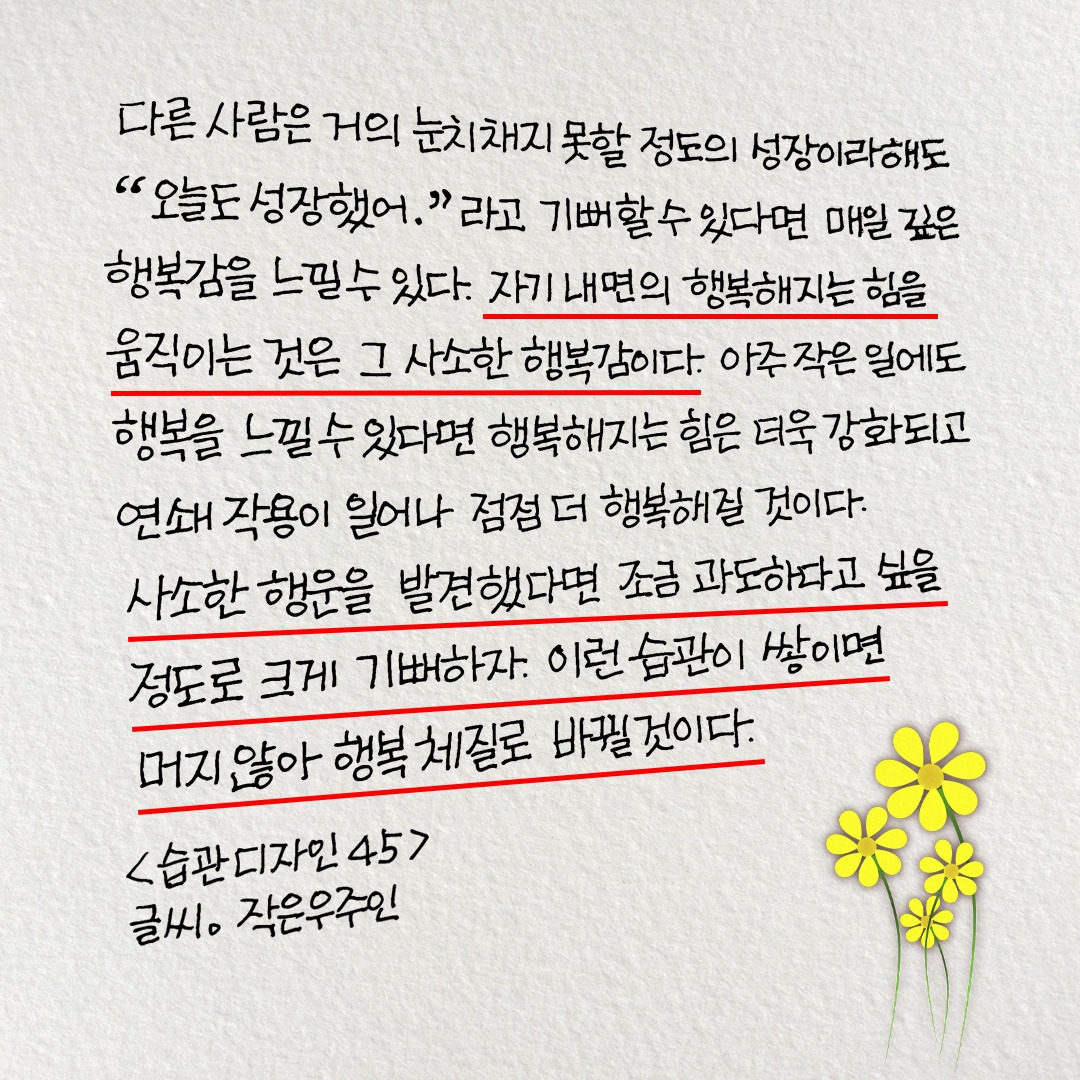 다른 사람은 거의 눈치채지 못할 정도의 성장이라해도
“오늘도 성장했어.”라고 기뻐할 수 있다면 매일 깊은
행복감을 느낄 수 있다. 자기 내면의 행복해지는 힘을
움직이는 것은 그 사소한 행복감이다. 아주 작은 일에도
행복을 느낄 수 있다면 행복해지는 힘은 더욱 강화되고
연쇄 작용이 일어나 점점 더 행복해질 것이다.
사소한 행운을 발견했다면 조금 과도하다고 싶을
정도로 크게 기뻐하자. 이런 습관이 쌓이면
머지않아 행복 체질로 바뀔 것이다.
<습관 디자인 45>
글씨。 작은우주인